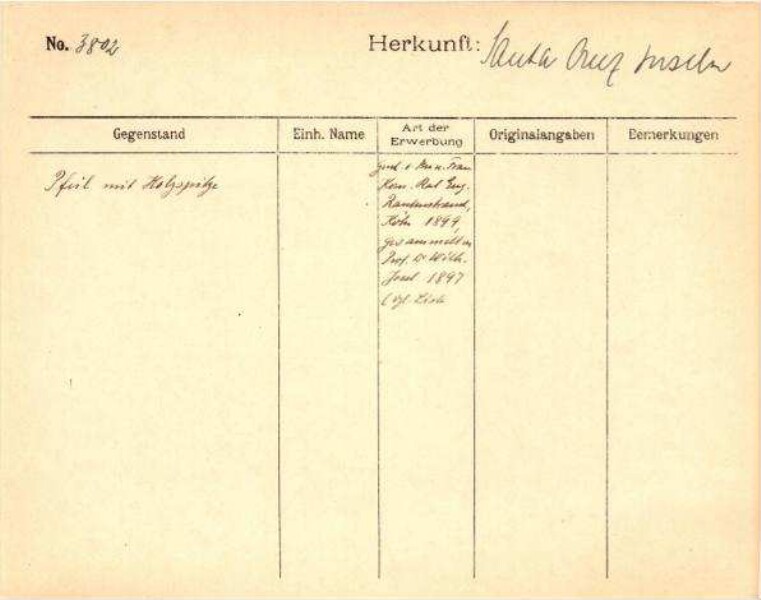 No. 3802
Herkunft: Santa Cruz Inseln
Gegenstand
Einh. Name
Art der Erwerbung
Originalangaben
Bemerkungen
Pfeil mit Holzspitze
Frau
Kom. Rat Eug.
Rautenstrauch,
Köln 1899,
gesammelt v.
Prof. Dr Wilh.
Joest 1897
(vgl. Liste